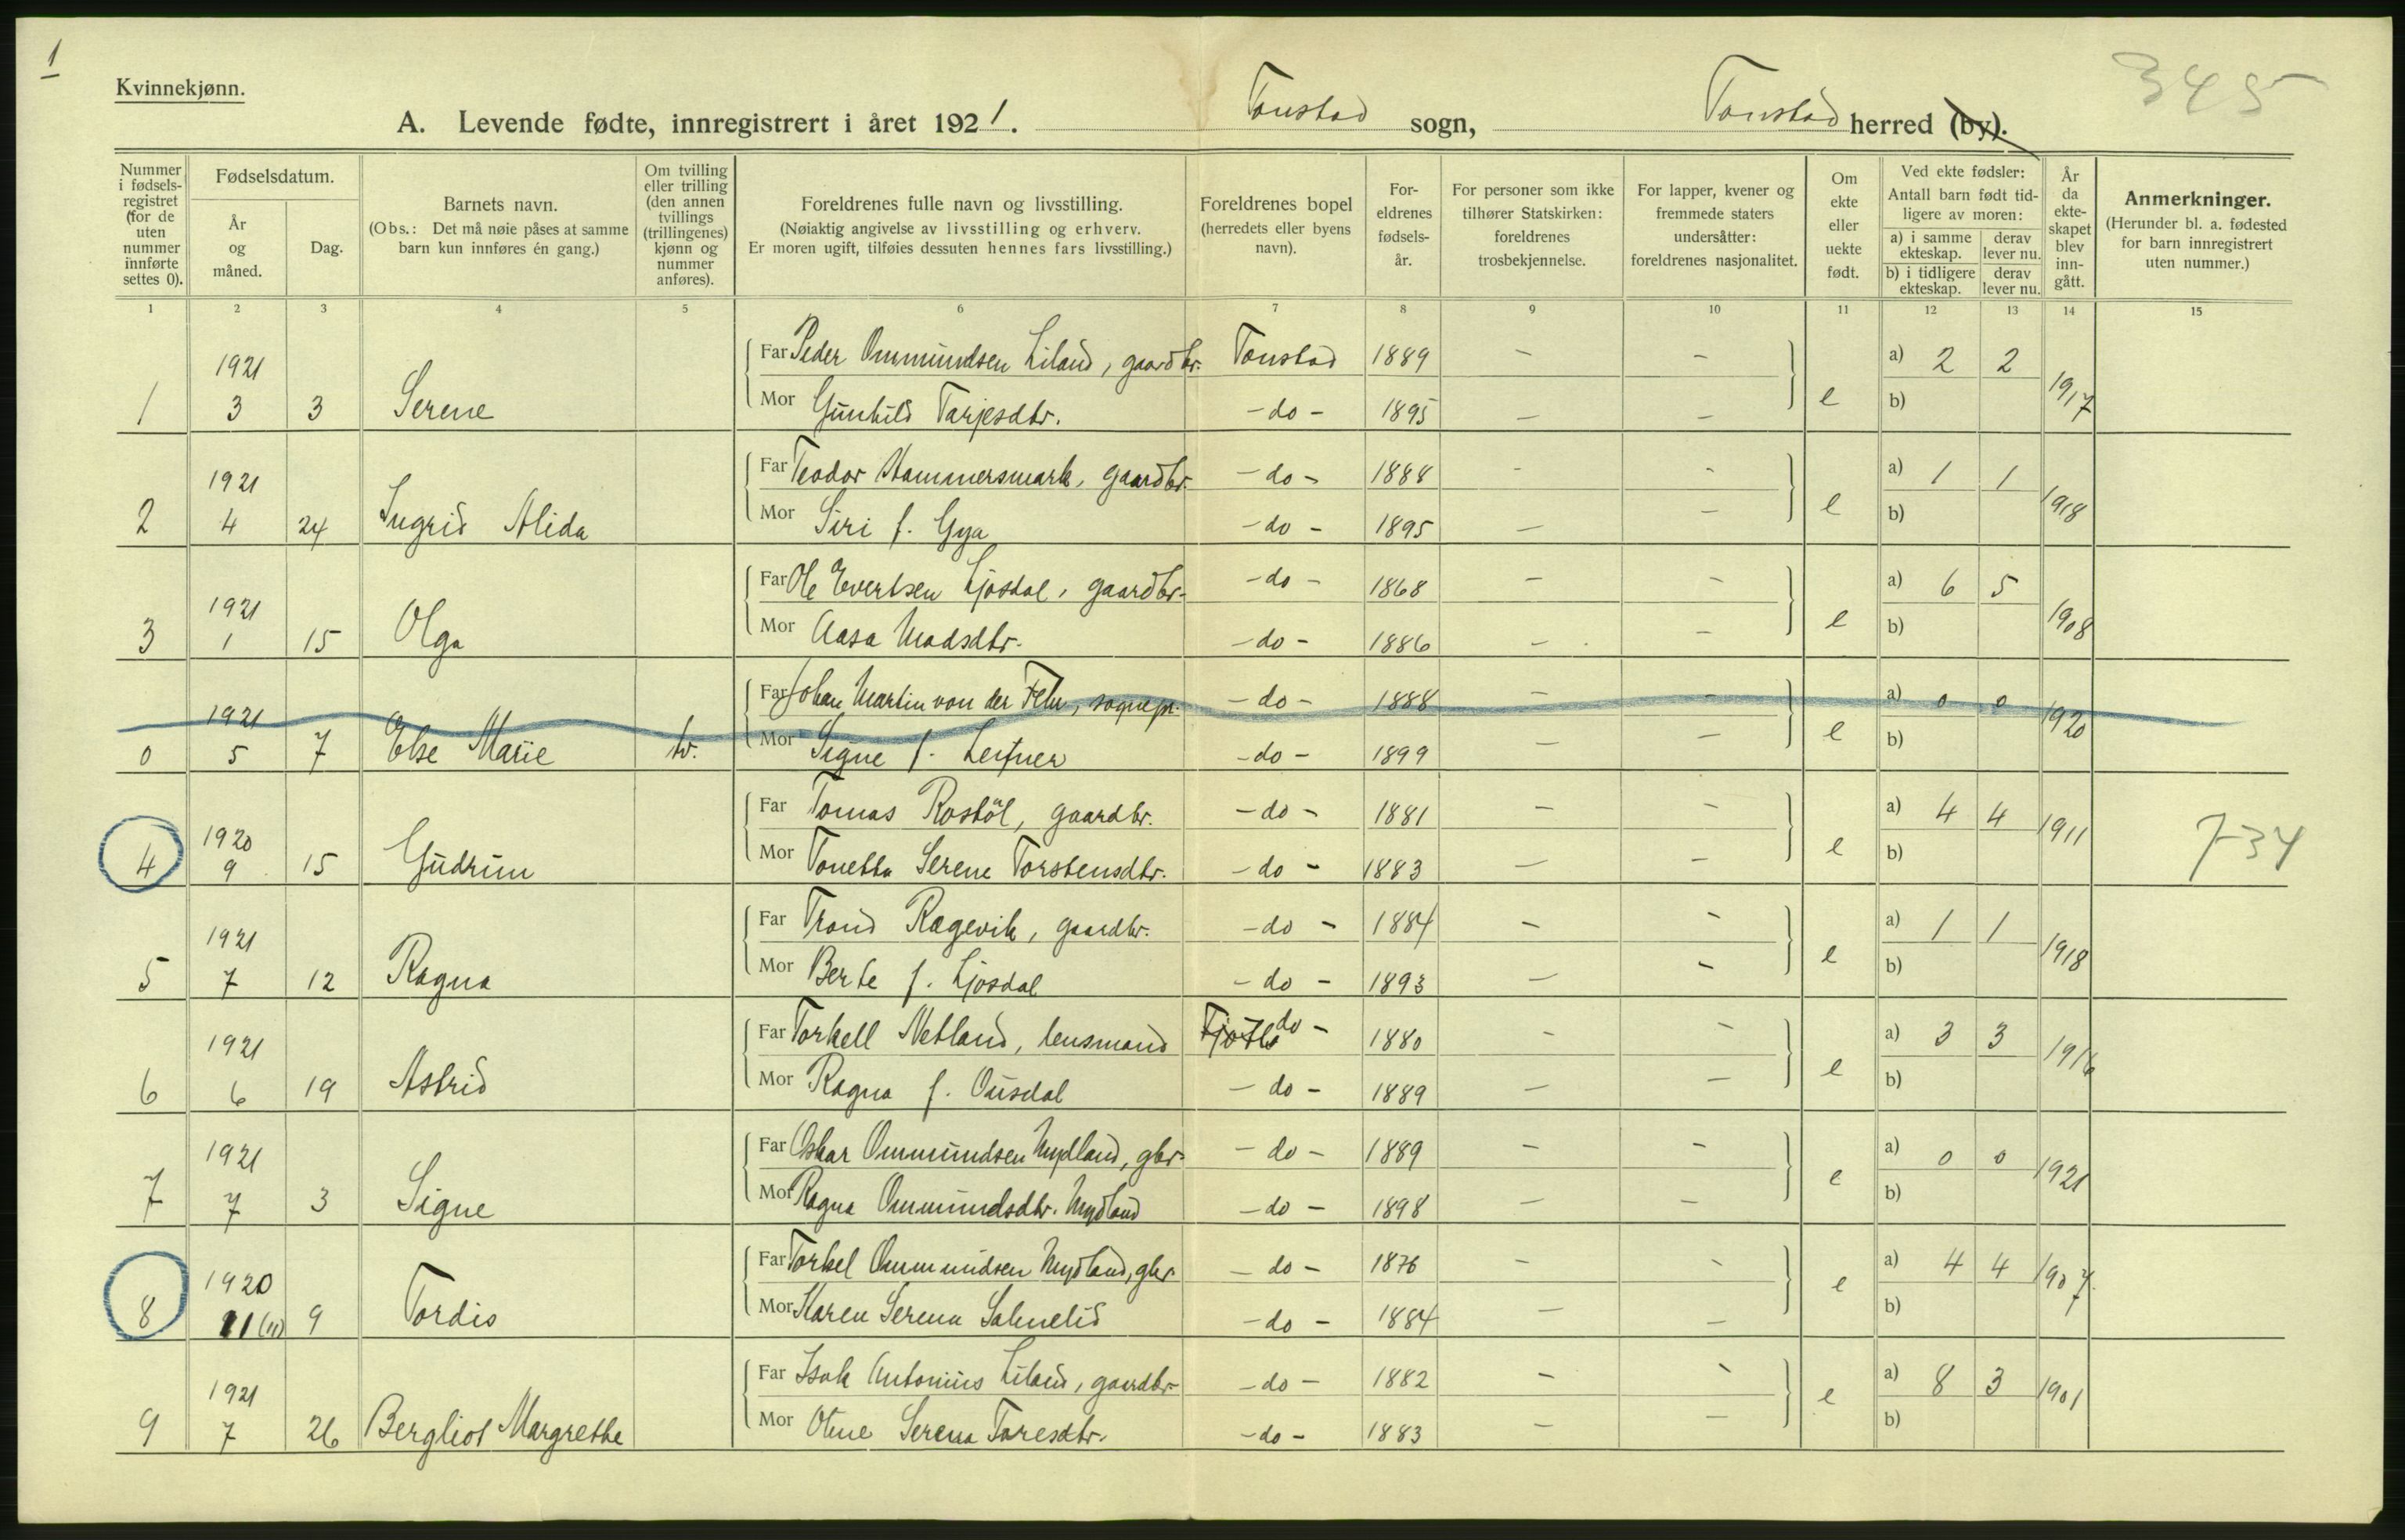 1
345
Kvinnekjønn.
A. Levende fødte, innregistrert i året 1921. Tonstad sogn, Tonstad herred (by).
Nummer i fødsels-registret (for de uten nummer innførte settes 0).
Fødselsdatum.
År og måned.
Dag.
Barnets navn.
(Obs.: Det må nøie påses at samme barn kun innføres én gang.)
Om tvilling eller trilling (den annen tvillings (trillingenes) kjønn og nummer anføres).
Foreldrenes fulle navn og livsstilling.
(Nøiaktig angivelse av livsstilling og erhverv.
Er moren ugift, tilføies dessuten hennes fars livsstilling.)
Foreldrenes bopel (herredets eller byens navn).
For-eldrenes fødsels-år.
For personer som ikke tilhører Statskirken: foreldrenes trosbekjennelse.
For lapper, kvener og fremmede staters undersåtter: foreldrenes nasjonalitet.
Om ekte eller uekte født.
Ved ekte fødsler:
Antall barn født tid-ligere av moren:
a) i samme ekteskap. derav lever nu.
b) i tidligere ekteskap. derav lever nu.
År da ekte-skapet blev inn-gått.
Anmerkninger.
(Herunder bl. a. fødested for barn innregistrert uten nummer.)
1 2 3 4 5 6 7 8 9 10 11 12 13 14 15
1921 Far Peder Ommundsen Liland, gaardbr. Tonstad 1889 – – a) 2 2
1 3 3 Serene Mor Gunhild Tarjesdtr. – do – 1895 – – e b) 1917
1921 Far Teodor Hammersmark, gaardbr. – do – 1888 - - a) 1 1
2 4 24 Ingrid Alida Mor Siri f. Gya – do – 1895 – – e b) 1918
1921 Far Ole Evertsen Ljosdal, gaardbr. – do – 1868 – – a) 6 5
3 1 15 Olga Mor Aasa Madsdtr. – do – 1886 – – e b) 1908
1921 Far Johan Martin von der Fehr, sognepr. – do – 1888 – – a) 0 0
0 5 7 Else Marie tv. Mor Signe f. – do – 1899 – – e b) 1920
1920 Far Tomas Rostöl, gaardbr. – do – 1881 – – a) 4 4 1911
4 9 15 Gudrun Mor Tonetta Serene Torstensdtr. – do – 1883 – – e b) 734
1921 Far Trond Ragevik, gaardbr. – do – 1884 – – a) 1 1
5 7 12 Ragna Mor Berte f. Ljosdal – do – 1893 – – e b) 1918
1921 Far Torkell Netland, lensmand do – 1880 – – a) 3 3
6 6 19 Astrid Mor Ragna f. Ousdal – do – 1889 – – e b) 1916
1921 Far Oskar Ommundsen Mydland, gbr. – do – 1889 – – a) 0 0
7 7 3 Signe Mor Ragna Ommundsdtr. Mydland – do – 1898 – – e b) 1921
1920 Far Torkel Ommundsen Mydland, gbr. – do – 1876 – – a) 4 4
8 11 (11) 9 Tordis Mor Karen Serena – do – 1884 – – e b) 1907
1921 Far Isak Antonius Liland, gaardbr. – do – 1882 – – a) 8 3
9 7 26 Bergliot Margrethe Mor Serena Toresdtr. – do – 1883 – – e b) 1901